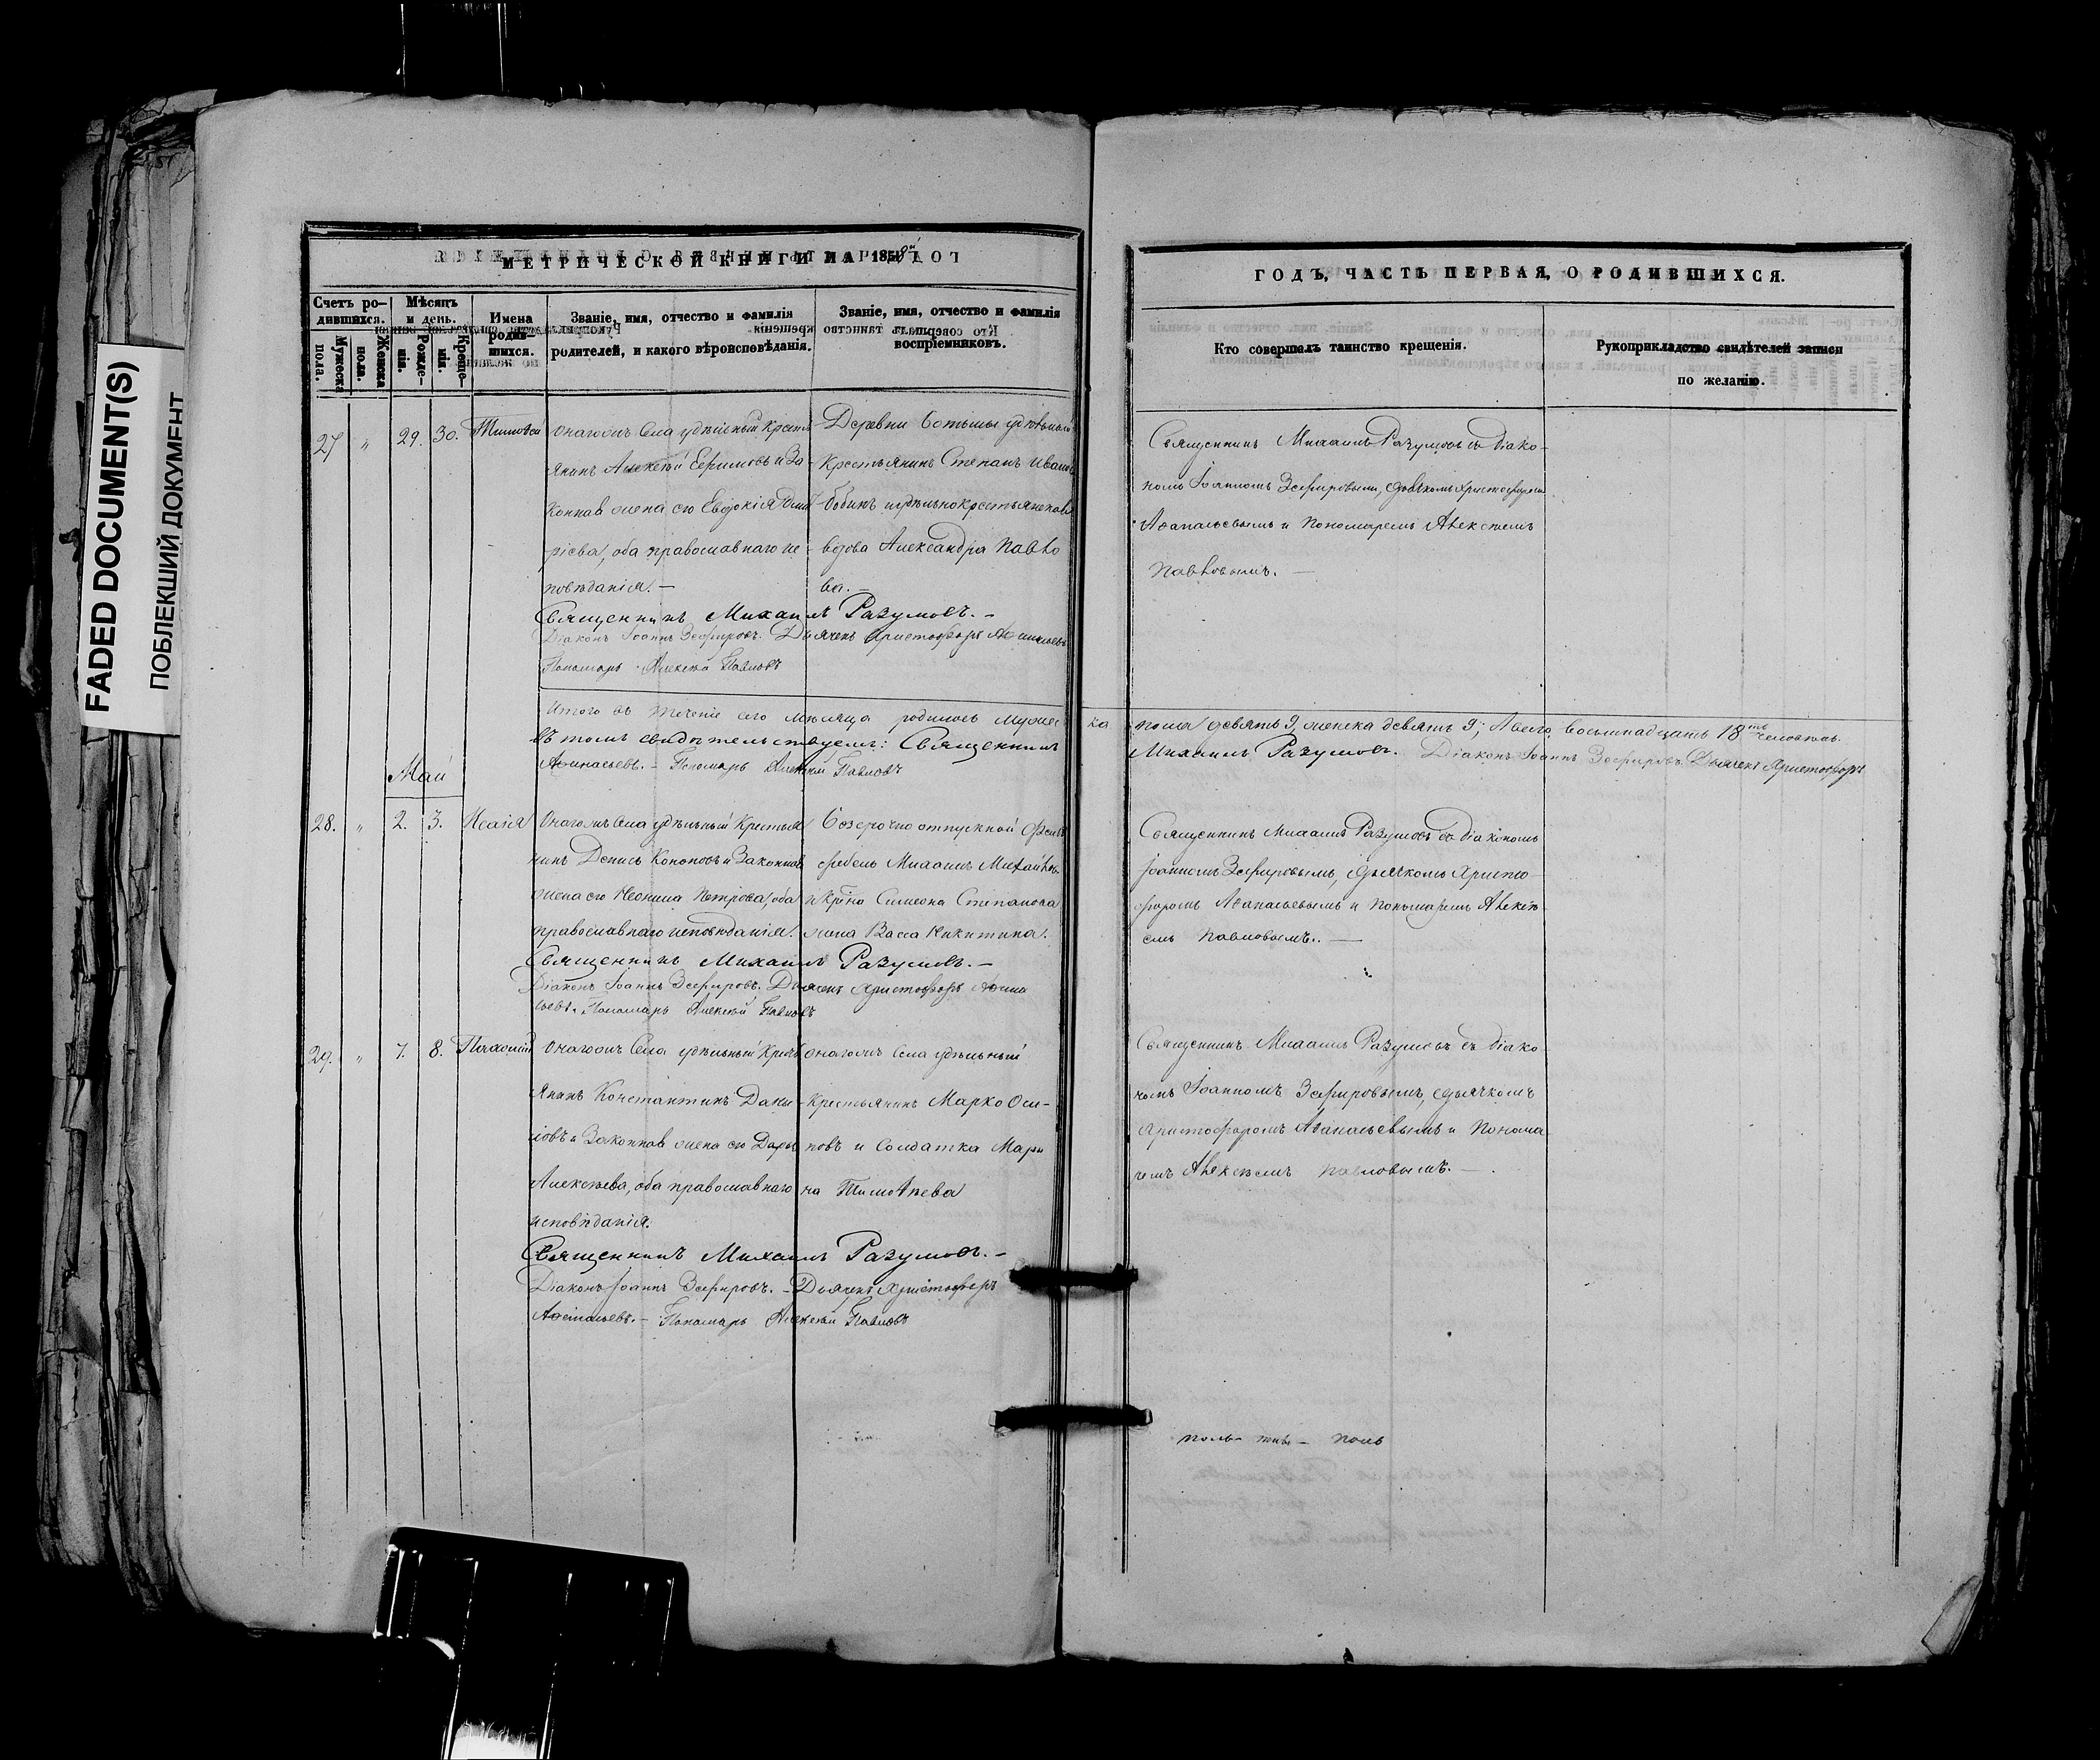 FADED DOCUMENT(S)
ПОБЛЕКШИЙ ДОКУМЕНТ
МЕТРИЧЕСКОЙ КНИГИ НА 185
Счетъ ро-
дившихся.
Мужеска
пола.
Женска
пола.
Мѣсяцъ
и день.
Рожде-
нія.
Креще-
нія.
Имена
родив-
шихся.
Званіе, имя, отчество и фамилія
родителей, и какого вѣроисповѣданія.
Званіе, имя, отчество и фамилія
воспріемниковъ.
27 „ 29. 30. Тимоѳей
Онагожъ Села удѣльный Кресть
янинъ Алексѣй Ефимовъ и За-
конная жена его Евдокія Дмит-
ріева, оба православнаго ис-
повѣданія. —
Деревни удѣльный
Крестьянинъ Степанъ Ивановъ
Бобинъ
вдова Александра Павло
ва. —
Священникъ Михаилъ Разумовъ. —
Діаконъ Іоаннъ Зефировъ. Дьячекъ Христофоръ Аѳанасьевъ
Пономарь Алексѣй Павловъ
Итого въ теченіе сего мѣсяца родилось Мужес
Въ томъ свидѣтельствуемъ: Священникъ
Аѳанасьевъ. — Пономарь Алексѣй Павловъ
Май
28. „ 2. 3. Исаія
Онагожъ Села удѣльный Крестья
нинъ Денисъ Кононовъ и Законная
жена его Неонила Петрова, оба
православнаго исповѣданія.
Безсрочно отпускной Фельд
фебель Михаилъ Михайлов
Симеона Степанова
жена Васса Никитина.
Священникъ Михаилъ Разумовъ. —
Діаконъ Іоаннъ Зефировъ. Дьячекъ Христофоръ Аѳана
сьевъ. Пономарь Алексѣй Павловъ
29. „ 7. 8. Пахомій
Онагожъ Села удѣльный Кресть
янинъ Константинъ Дани-
ловъ и Законная жена его Дарья
Алексѣева, оба православнаго
исповѣданія.
Онагожъ Села удѣльный
Крестьянинъ Марко Оси-
повъ и Солдатка Мари
на Тимоѳѣева
Священникъ Михаилъ Разумовъ. —
Діаконъ Іоаннъ Зефировъ. — Дьячекъ Христофоръ
Аѳанасьевъ. — Пономарь Алексѣй Павловъ
ГОДЪ, ЧАСТЬ ПЕРВАЯ, О РОДИВШИХСЯ.
Кто совершалъ таинство крещенія.
Рукоприкладство свидѣтелей записи
по желанію.
Священникъ Михаилъ Разумовъ съ діако-
номъ Іоанномъ Зефировымъ, дьячкомъ Христофоромъ
Аѳанасьевымъ и пономаремъ Алексѣемъ
Павловымъ. —
ка пола девять 9, женска девять 9; Всего восьмнадцать 18ть человѣкъ.
Михаилъ Разумовъ. Діаконъ Іоаннъ Зефировъ. Дьячекъ Христофоръ
Священникъ Михаилъ Разумовъ съ діакономъ
Іоанномъ Зефировымъ, дьячкомъ Христо-
форомъ Аѳанасьевымъ и пономаремъ Алексѣ-
емъ Павловымъ. —
Священникъ Михаилъ Разумовъ съ діако
номъ Іоанномъ Зефировымъ, дьячкомъ
Христофоромъ Аѳанасьевымъ и понома
ремъ Алексѣемъ Павловымъ. —